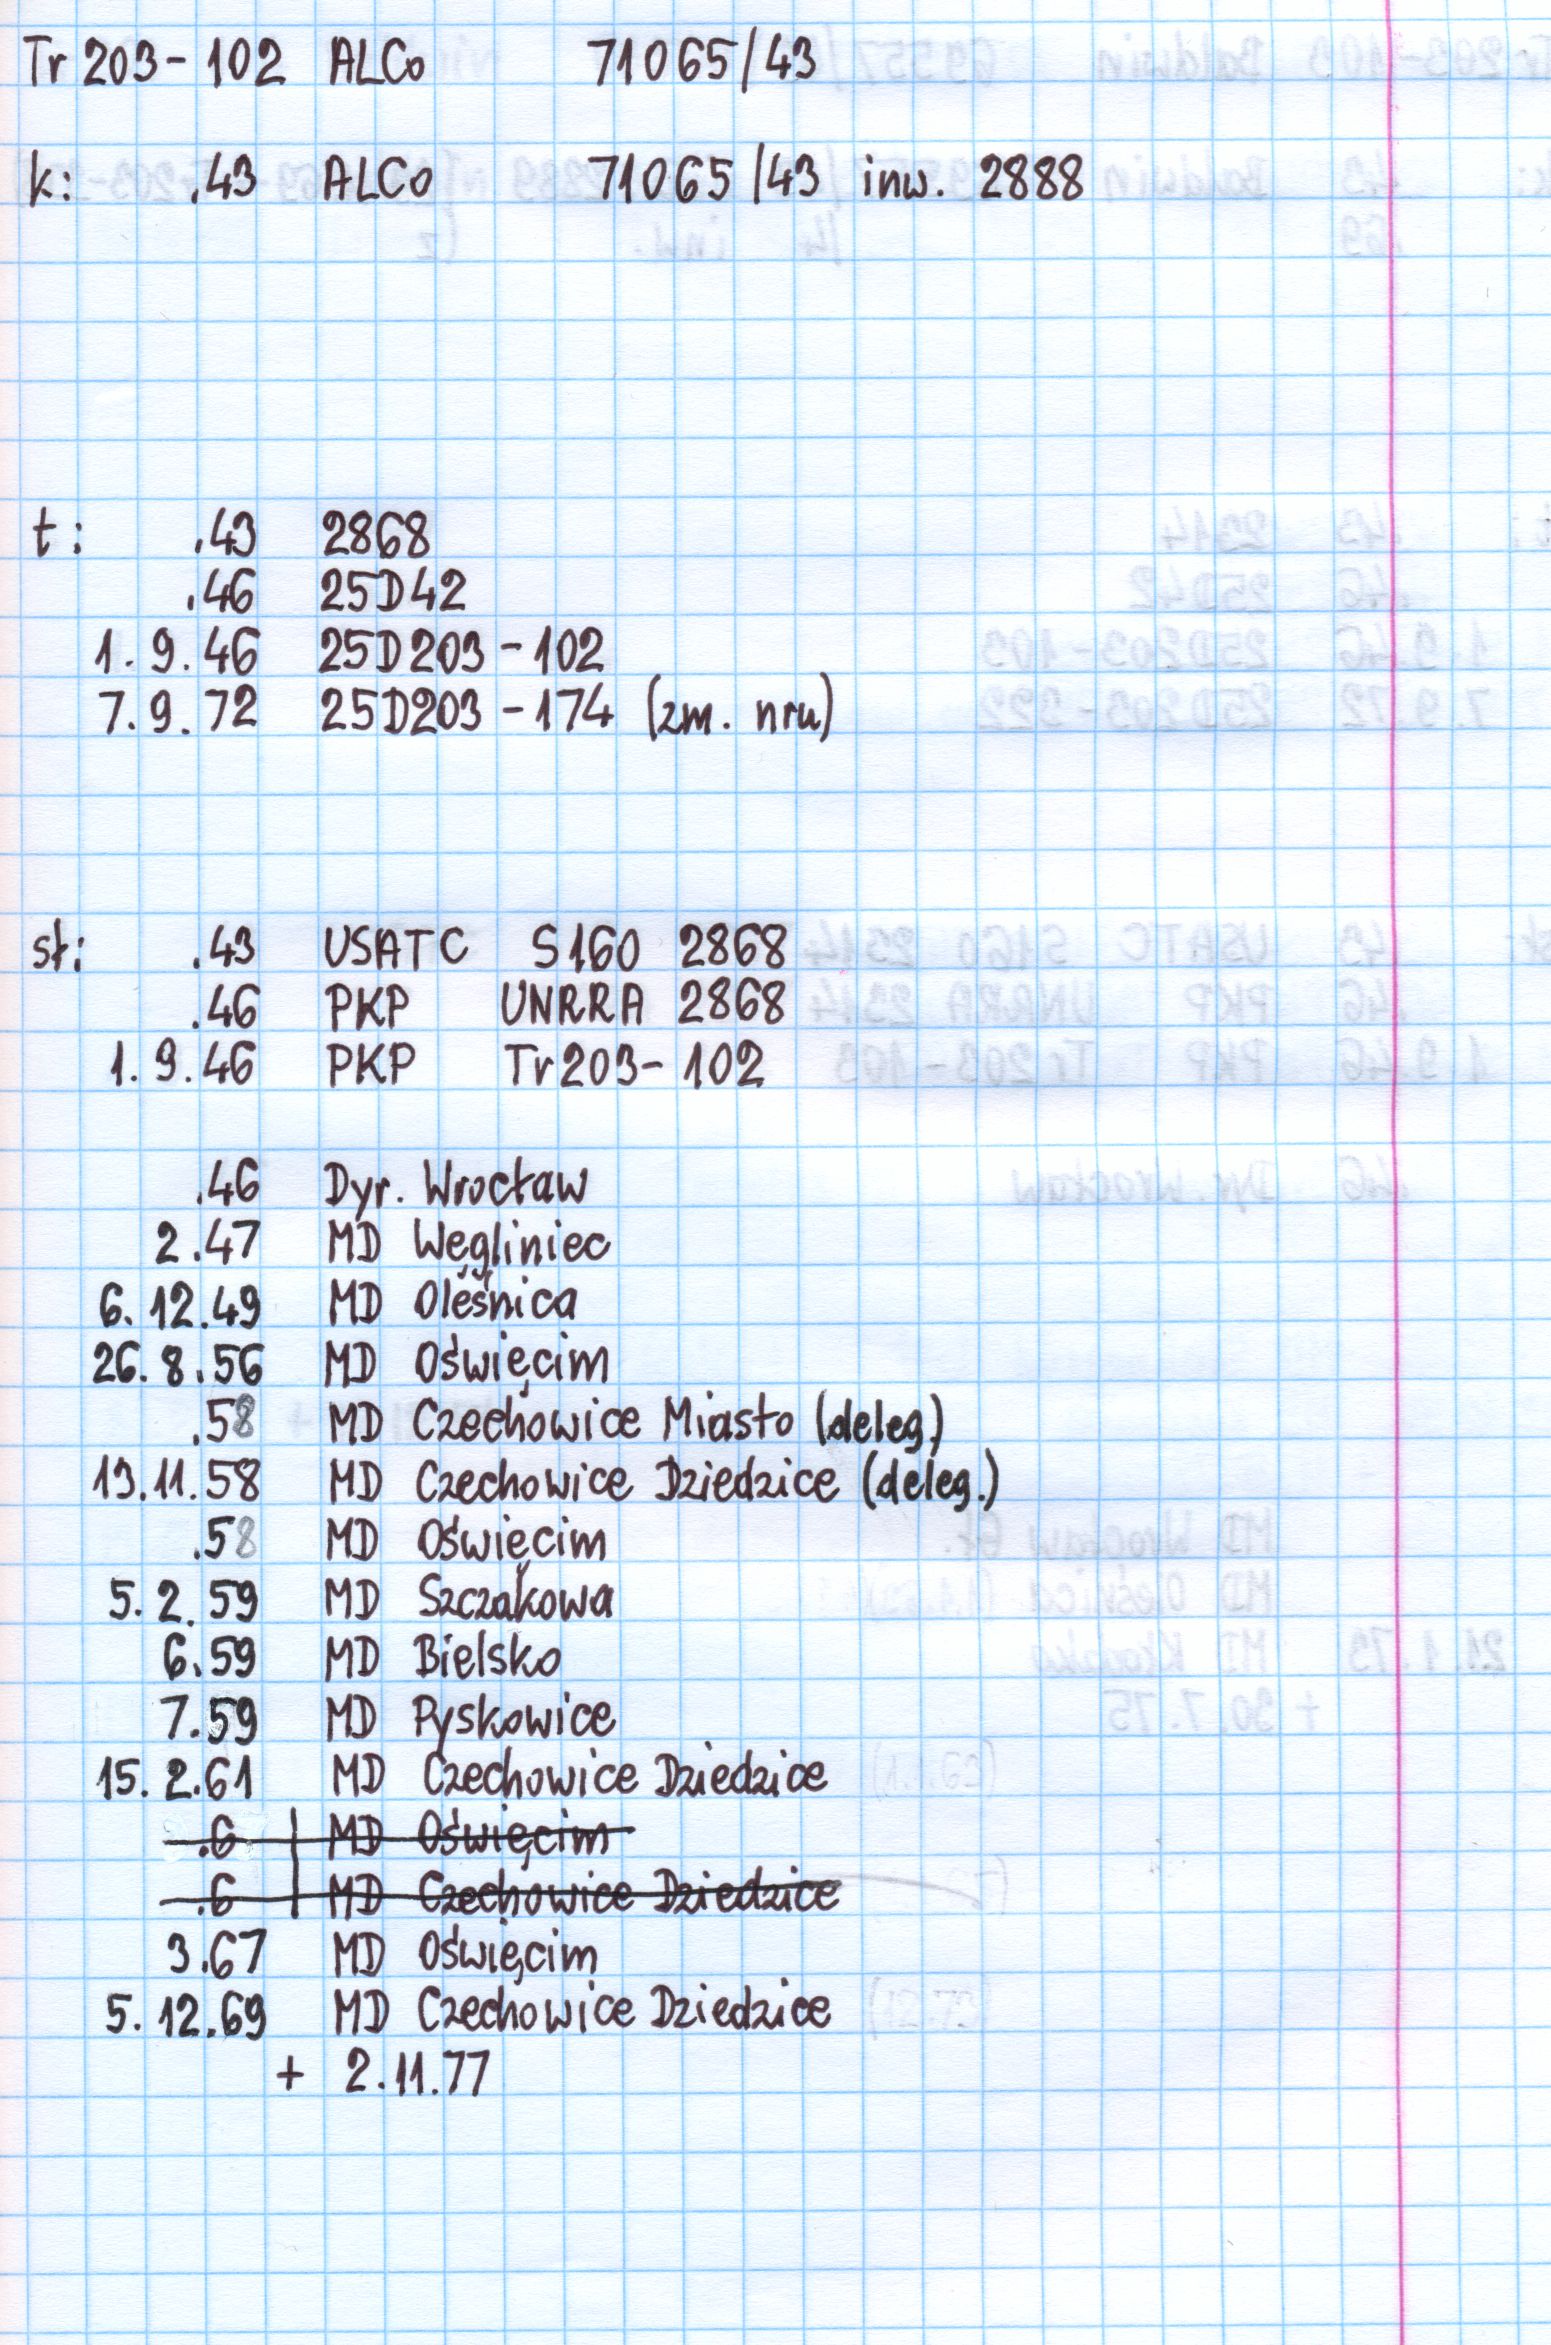 Tr 203-102 ALCo 71065/43
k: .43 ALCo 71065/43 inw. 2888
t: .43 2868
.46 25D42
1.9.46 25D203-102
7.9.72 25D203-174 (zm. nru)
sł: .43 USATC S160 2868
.46 PKP UNRRA 2868
1.9.46 PKP Tr203-102
.46 Dyr. Wrocław
2.47 MD Węgliniec
6.12.49 MD Oleśnica
26.8.56 MD Oświęcim
.58 MD Czechowice Miasto (deleg.)
13.11.58 MD Czechowice Dziedzice (deleg.)
.58 MD Oświęcim
5.2.59 MD Szczakowa
6.59 MD Bielsko
7.59 MD Pyskowice
15.2.61 MD Czechowice Dziedzice
.6 MD Oświęcim
.6 MD Czechowice Dziedzice
3.67 MD Oświęcim
5.12.69 MD Czechowice Dziedzice
+ 2.11.77